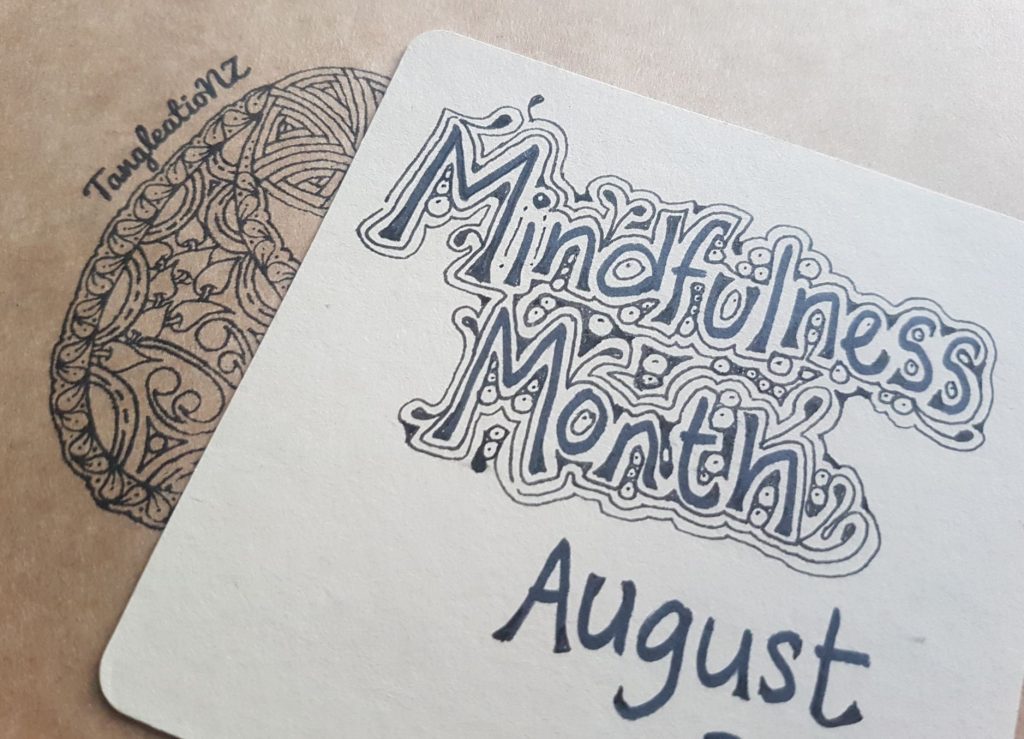 TangleatioNZ
Mindfulness
Month
August